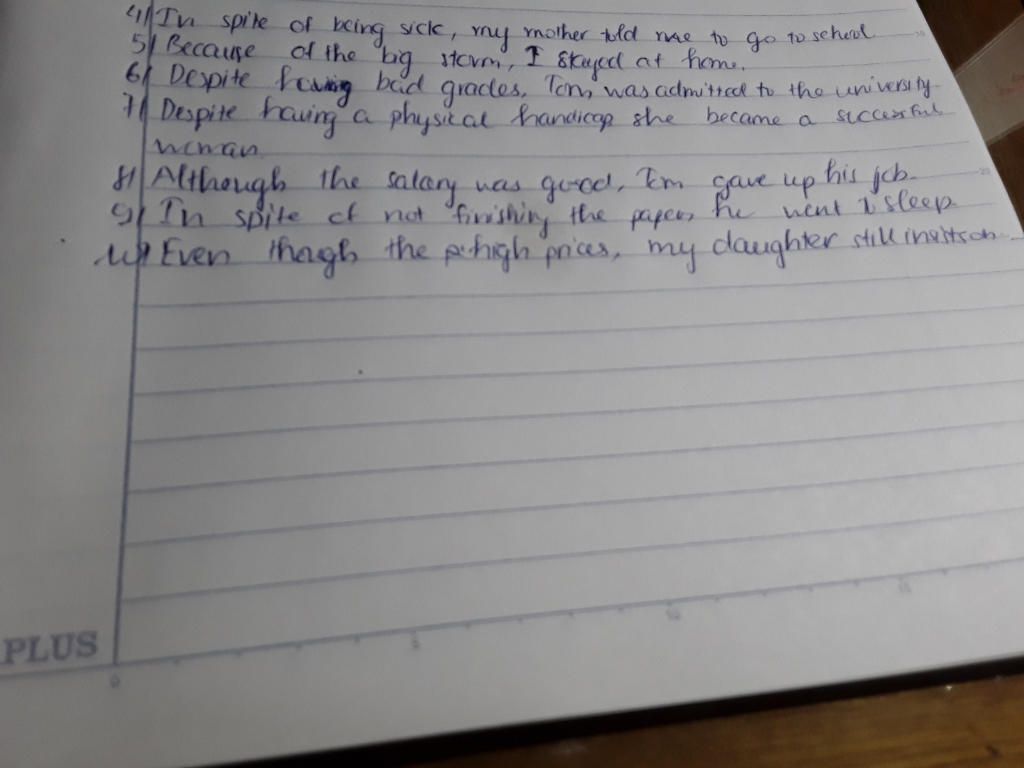 4/ In spite of being sick, my mother told me to go to school
5/ Because of the big storm, I stayed at home.
6/ Despite having bad grades, Tom, was admitted to the university.
7/ Despite having a physical handicap she became a successful
woman
8/ Although the salary was good, Tom gave up his job.
9/ In spite of not finishing the paper, he went to sleep.
10/ Even though the high prices, my daughter still insits on
PLUS
0 5 10 15